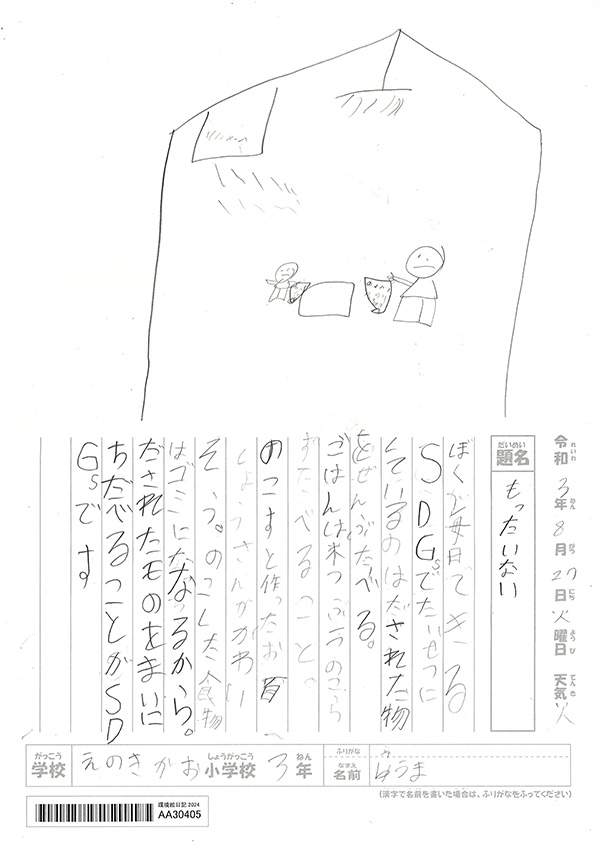 令和3年8月27日火曜日 天気火
れいわ ねん がつ にち ようび てんき
だいめい
題名 もったいない
ぼくが毎日できる
SDGsでたいせつに
しているのはだされた物
をぜんぶたべる。
ごはんは米つぶ のこら
ずたべること。
のこすと作ったお百
しょうさんがかわい
そう。のこした食物
はゴミになるから。
だされたものをまいに
ちたべることがSD
Gsです
がっこう しょうがっこう ねん
学校 えのきがお小学校 3年
ふりがな
なまえ
名前 ゆうま
(漢字で名前を書いた場合は、ふりがなをふってください)
環境絵日記 2024
AA30405